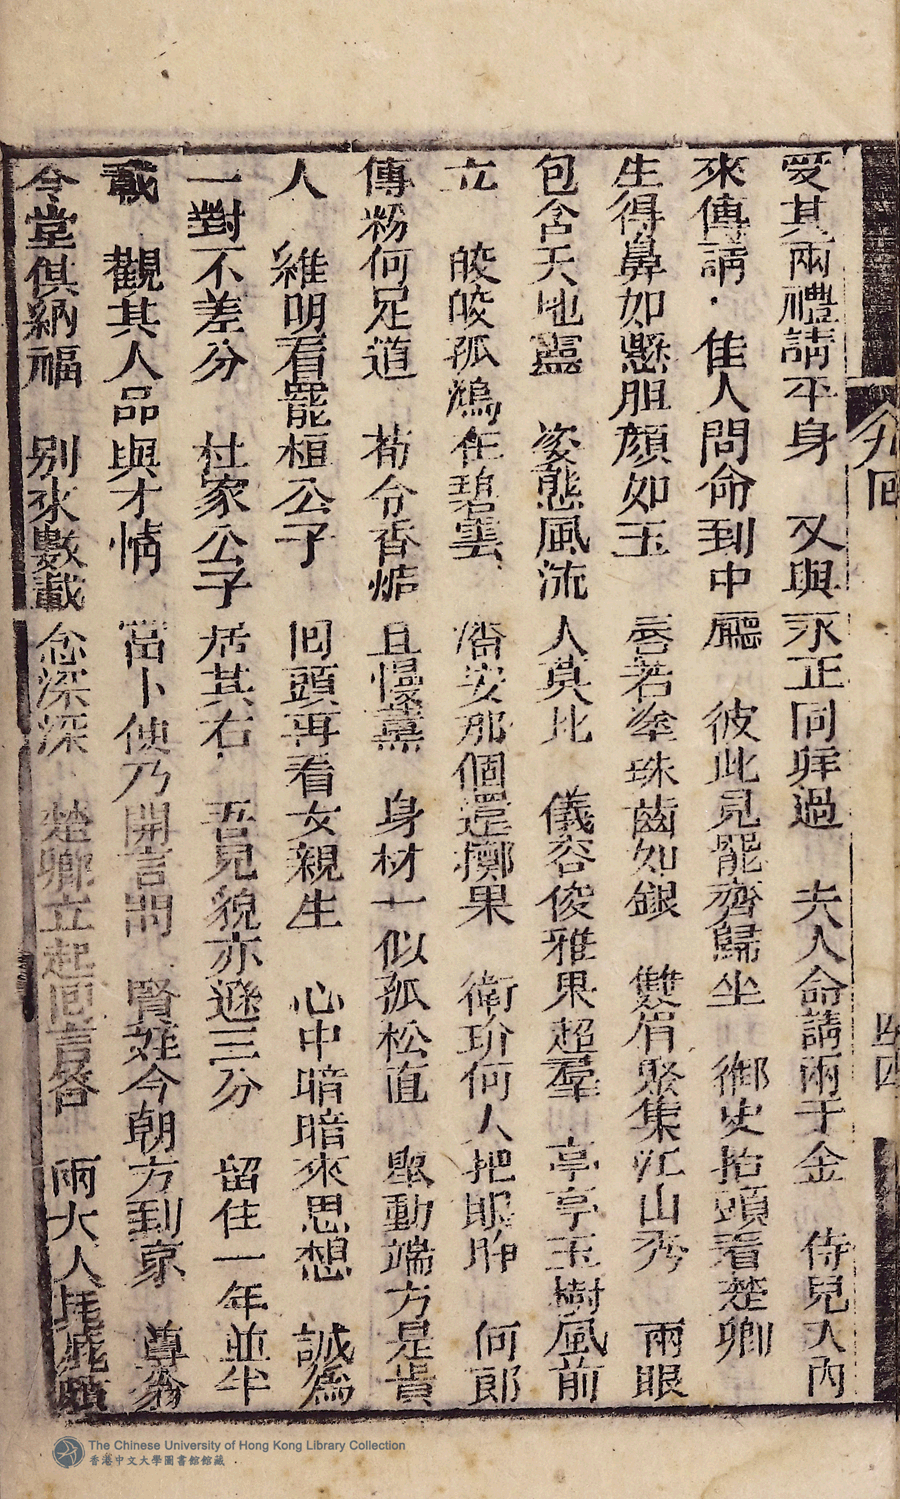 受其兩禮請平身　又與永正同拜過　夫人命請兩千金　侍兒入內
來傳請．佳人問命到中廳　彼此見罷齊歸坐　御史抬頭看楚卿
生得鼻如懸胆顏如玉　唇若塗珠齒如銀　雙眉聚集江山秀　兩眼
包含天地靈　姿態風流人莫比　儀容俊雅果超羣　亭亭玉樹風前
立　皎皎孤鴻在碧雲　潘安那個還擲果　衛玠何人把眼睁　何郎
傳粉何足道　荀令香焰且慢薰　身材一似孤松直　舉動端方是貴
人　維明看罷桓公子　回頭再看女親生　心中暗暗來思想　誠為
一對不差分　杜家公子居其右　吾兒貌亦遜三分　留住一年並半
載　觀其人品與才情　當卜使乃開言問　賢姪今朝方到京　尊翁
令堂俱納福　別來數載念深深　楚卿立起回言答　兩大人托庇頗
九回
The Chinese University of Hong Kong Library Collection
香港中文大學圖書館館藏